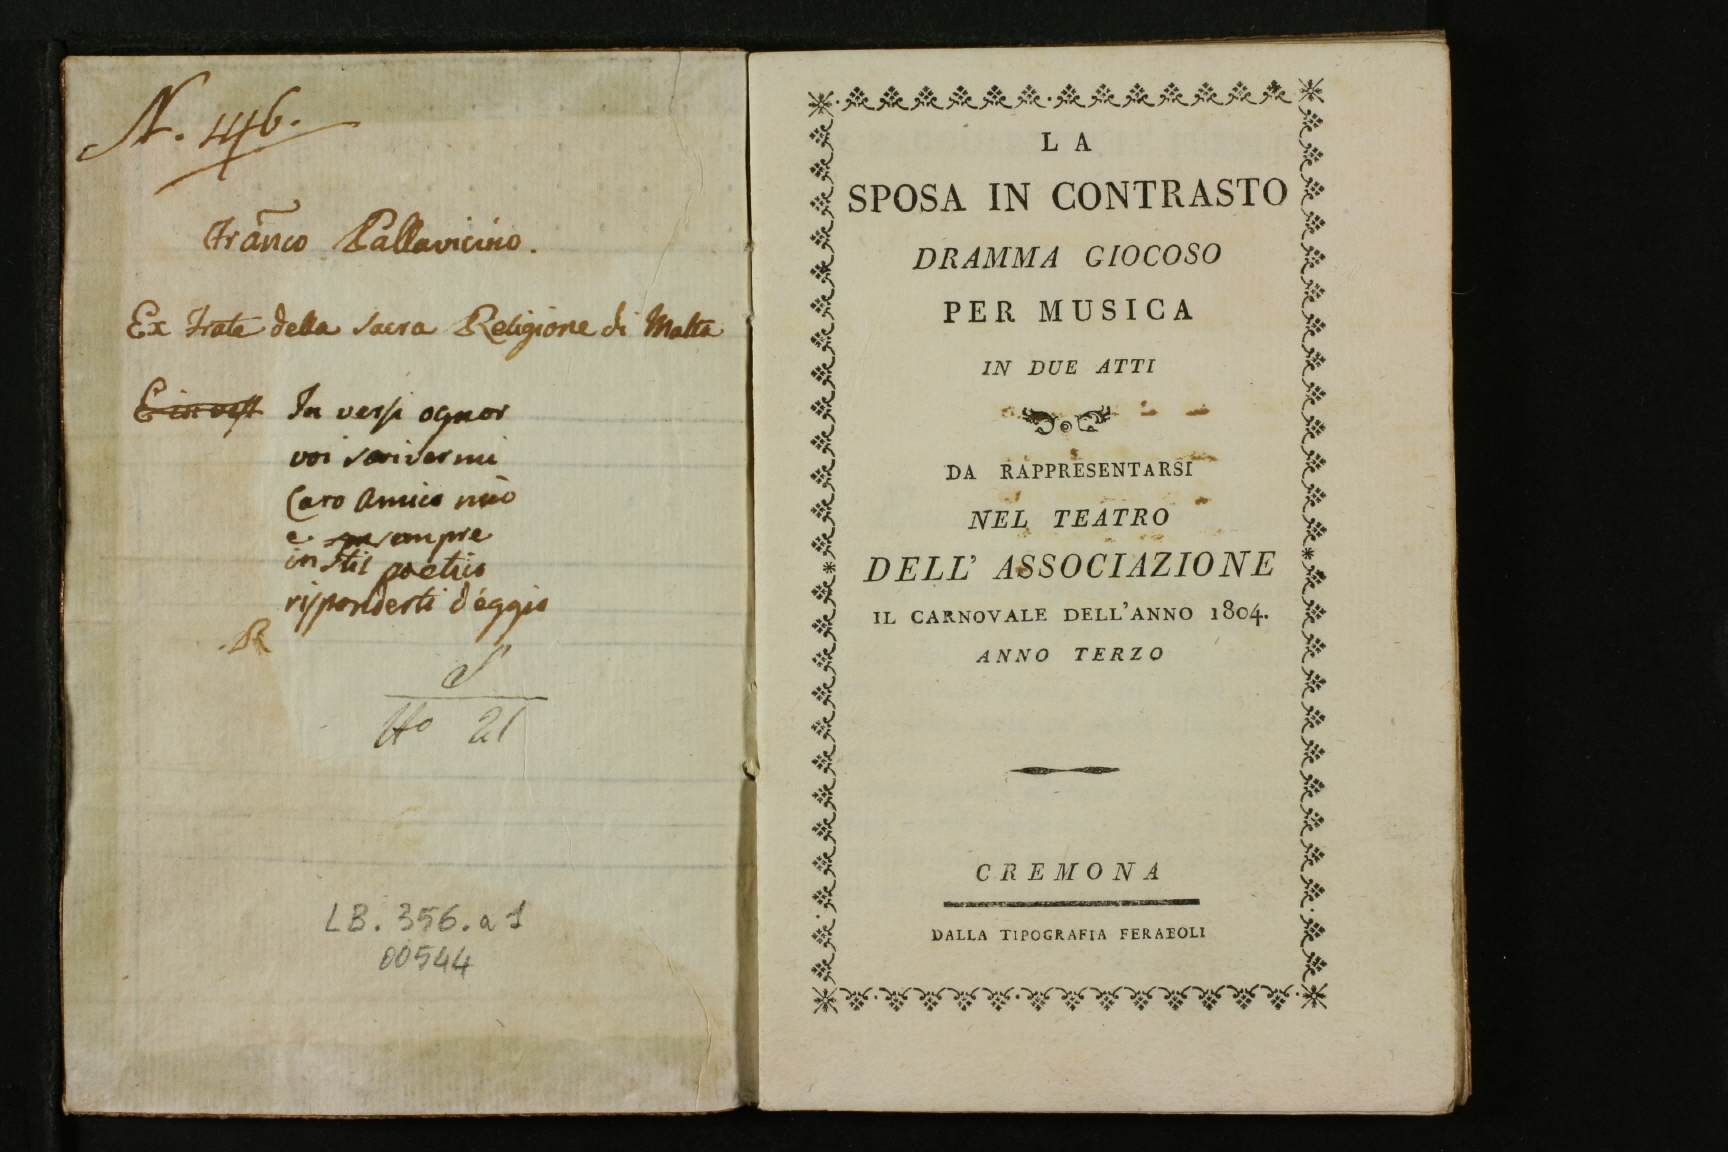 N. 446.
Franco Pallavicino.
Ex Frate della sacra Religione di Malta
E in vers In versi ognor
voi scrivermi
Caro Amico mio
e sempre
in stil poetico
risponderti déggio
LB. 356. a 1
00544
LA
SPOSA IN CONTRASTO
DRAMMA GIOCOSO
PER MUSICA
IN DUE ATTI
DA RAPPRESENTARSI
NEL TEATRO
DELL' ASSOCIAZIONE
IL CARNOVALE DELL'ANNO 1804.
ANNO TERZO
CREMONA
DALLA TIPOGRAFIA FERABOLI